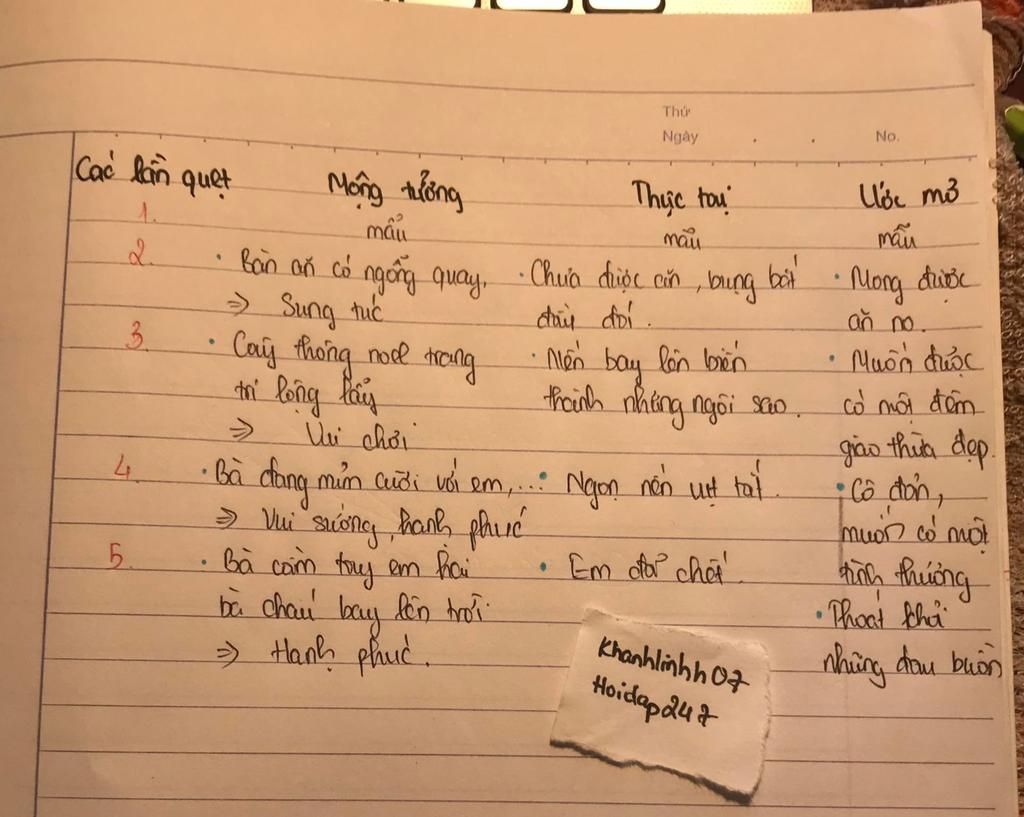 Thứ
Ngày . . No.
Các lần quẹt Mộng tưởng Thực tại Ước mơ
1. mẫu mẫu mẫu
2. • Bàn ăn có ngỗng quay. • Chưa được ăn, bụng bắt • Mong được
⇒ Sung túc đầu đói. ăn no.
3. • Cây thông noel trang • Nến bay lên biến • Muốn được
trí lộng lẫy thành những ngôi sao. có một đêm
⇒ Vui chơi giao thừa đẹp.
4. • Bà đang mỉm cười với em,... • Ngọn nến vụt tắt. • Cô đơn,
⇒ Vui sướng, hạnh phúc muốn có một
5. • Bà cầm tay em hai • Em đã chết. tình thương
bà cháu bay lên trời. • Thoát khỏi
⇒ Hạnh phúc. những đau buồn
Khanhlinhh07
Hoidap247